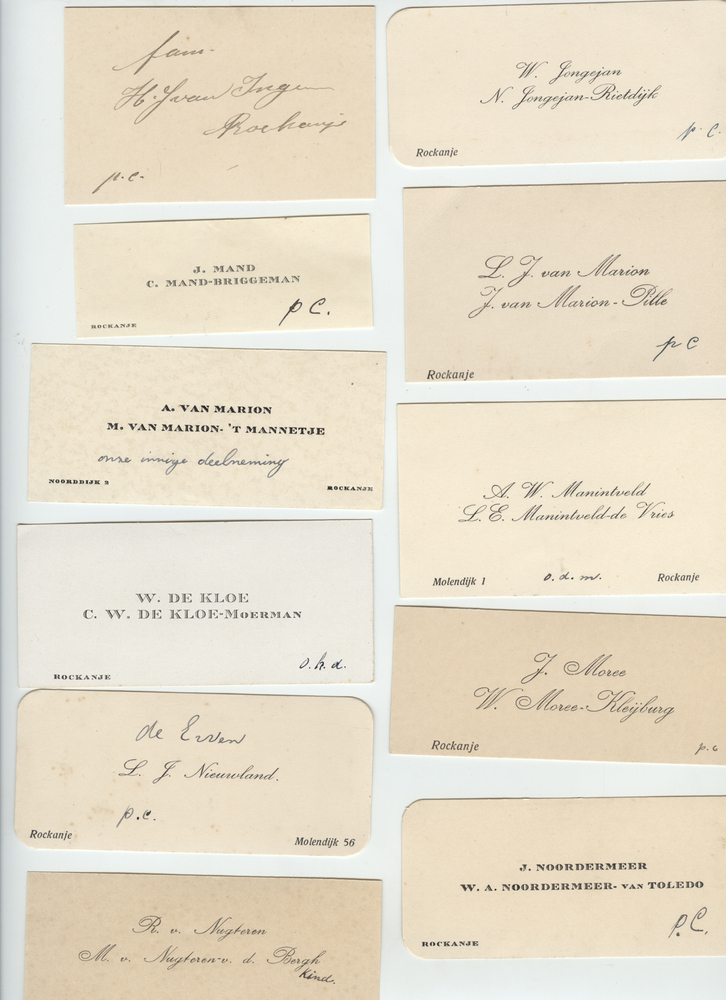 fam.
H. J van Ingen
Rockanje
p.c.
J. MAND
C. MAND-BRIGGEMAN
p C.
ROCKANJE
A. VAN MARION
M. VAN MARION- 'T MANNETJE
onze innige deelneming
NOORDDIJK 2 ROCKANJE
W. DE KLOE
C. W. DE KLOE-MOERMAN
o.h.d.
ROCKANJE
de Erven
L. J. Nieuwland.
p.c.
Rockanje Molendijk 56
R. v. Nugteren
M. v. Nugteren-v. d. Bergh
Kind.
W. Jongejan
N. Jongejan-Rietdijk
p.c.
Rockanje
L. J. van Marion
J. van Marion-Pille
p c
Rockanje
A. W. Manintveld
L. E. Manintveld-de Vries
Molendijk 1 o.d.m. Rockanje
J. Moree
W. Moree-Kleijburg
Rockanje p.c
J. NOORDERMEER
W. A. NOORDERMEER- VAN TOLEDO
p.C.
ROCKANJE